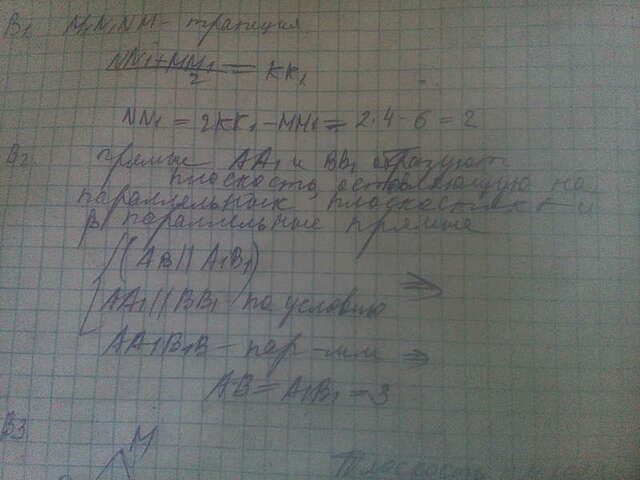 B1 M1N1NM - трапеция.
(NN1+MM1)/2 = KK1
NN1 = 2KK1 - MM1 = 2·4 - 6 = 2
B2 прямые AA1 и BB1 образуют
плоскость, оставляющую на
параллельных плоскостях α и
β параллельные прямые
(AB || A1B1)
AA1 || BB1 по условию ⇒
AA1B1B - пар-мм ⇒
AB = A1B1 = 3
B3
M
Плоскость